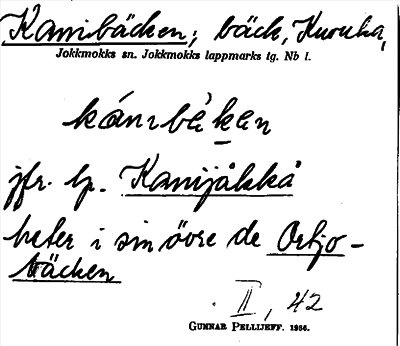 Kanibäcken; bäck, Kuouka,
Jokkmokks sn. Jokkmokks lappmarks tg. Nb l.
kánıbèkɐn
jfr. lp. Kanijåkkå
heter i sin övre de Orbjo-
bäcken
II, 42
GUNNAR PELLIJEFF. 1956.